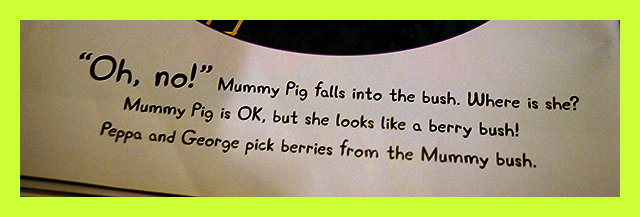 “Oh, no!” Mummy Pig falls into the bush. Where is she?
Mummy Pig is OK, but she looks like a berry bush!
Peppa and George pick berries from the Mummy bush.